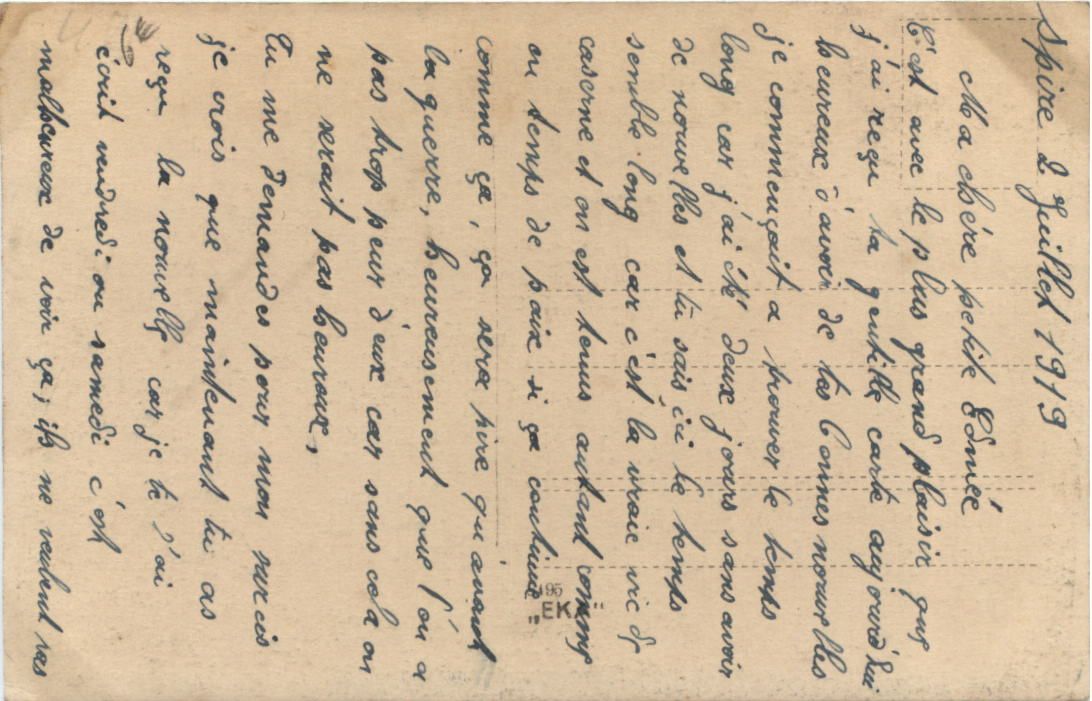 Spire 2 Juillet 1919
Ma chère petite Edmée
C'est avec le plus grand plaisir que
j'ai reçu ta gentille carte aujourd'hui
heureux d'avoir de tes bonnes nouvelles
je commençait a trouver le temps
long car j'ai été deux jours sans avoir
de nouvelles et tu sais ici le temps
semble long car c'est la vraie vie de
caserne et on est tenus autant comme
en temps de paix si ça continue
comme ça, ça sera pire qu'avant
la guerre, heureusement que l'on a
pas trop peur d'eux car sans cela on
ne serait pas heureux,
Tu me demandes pour mon sursis
je crois que maintenant tu as
reçu la nouvelle car je te l'ai
écrit vendredi ou samedi c'est
malheureux de voir ça, ils ne veulent pas
495
„EKA"